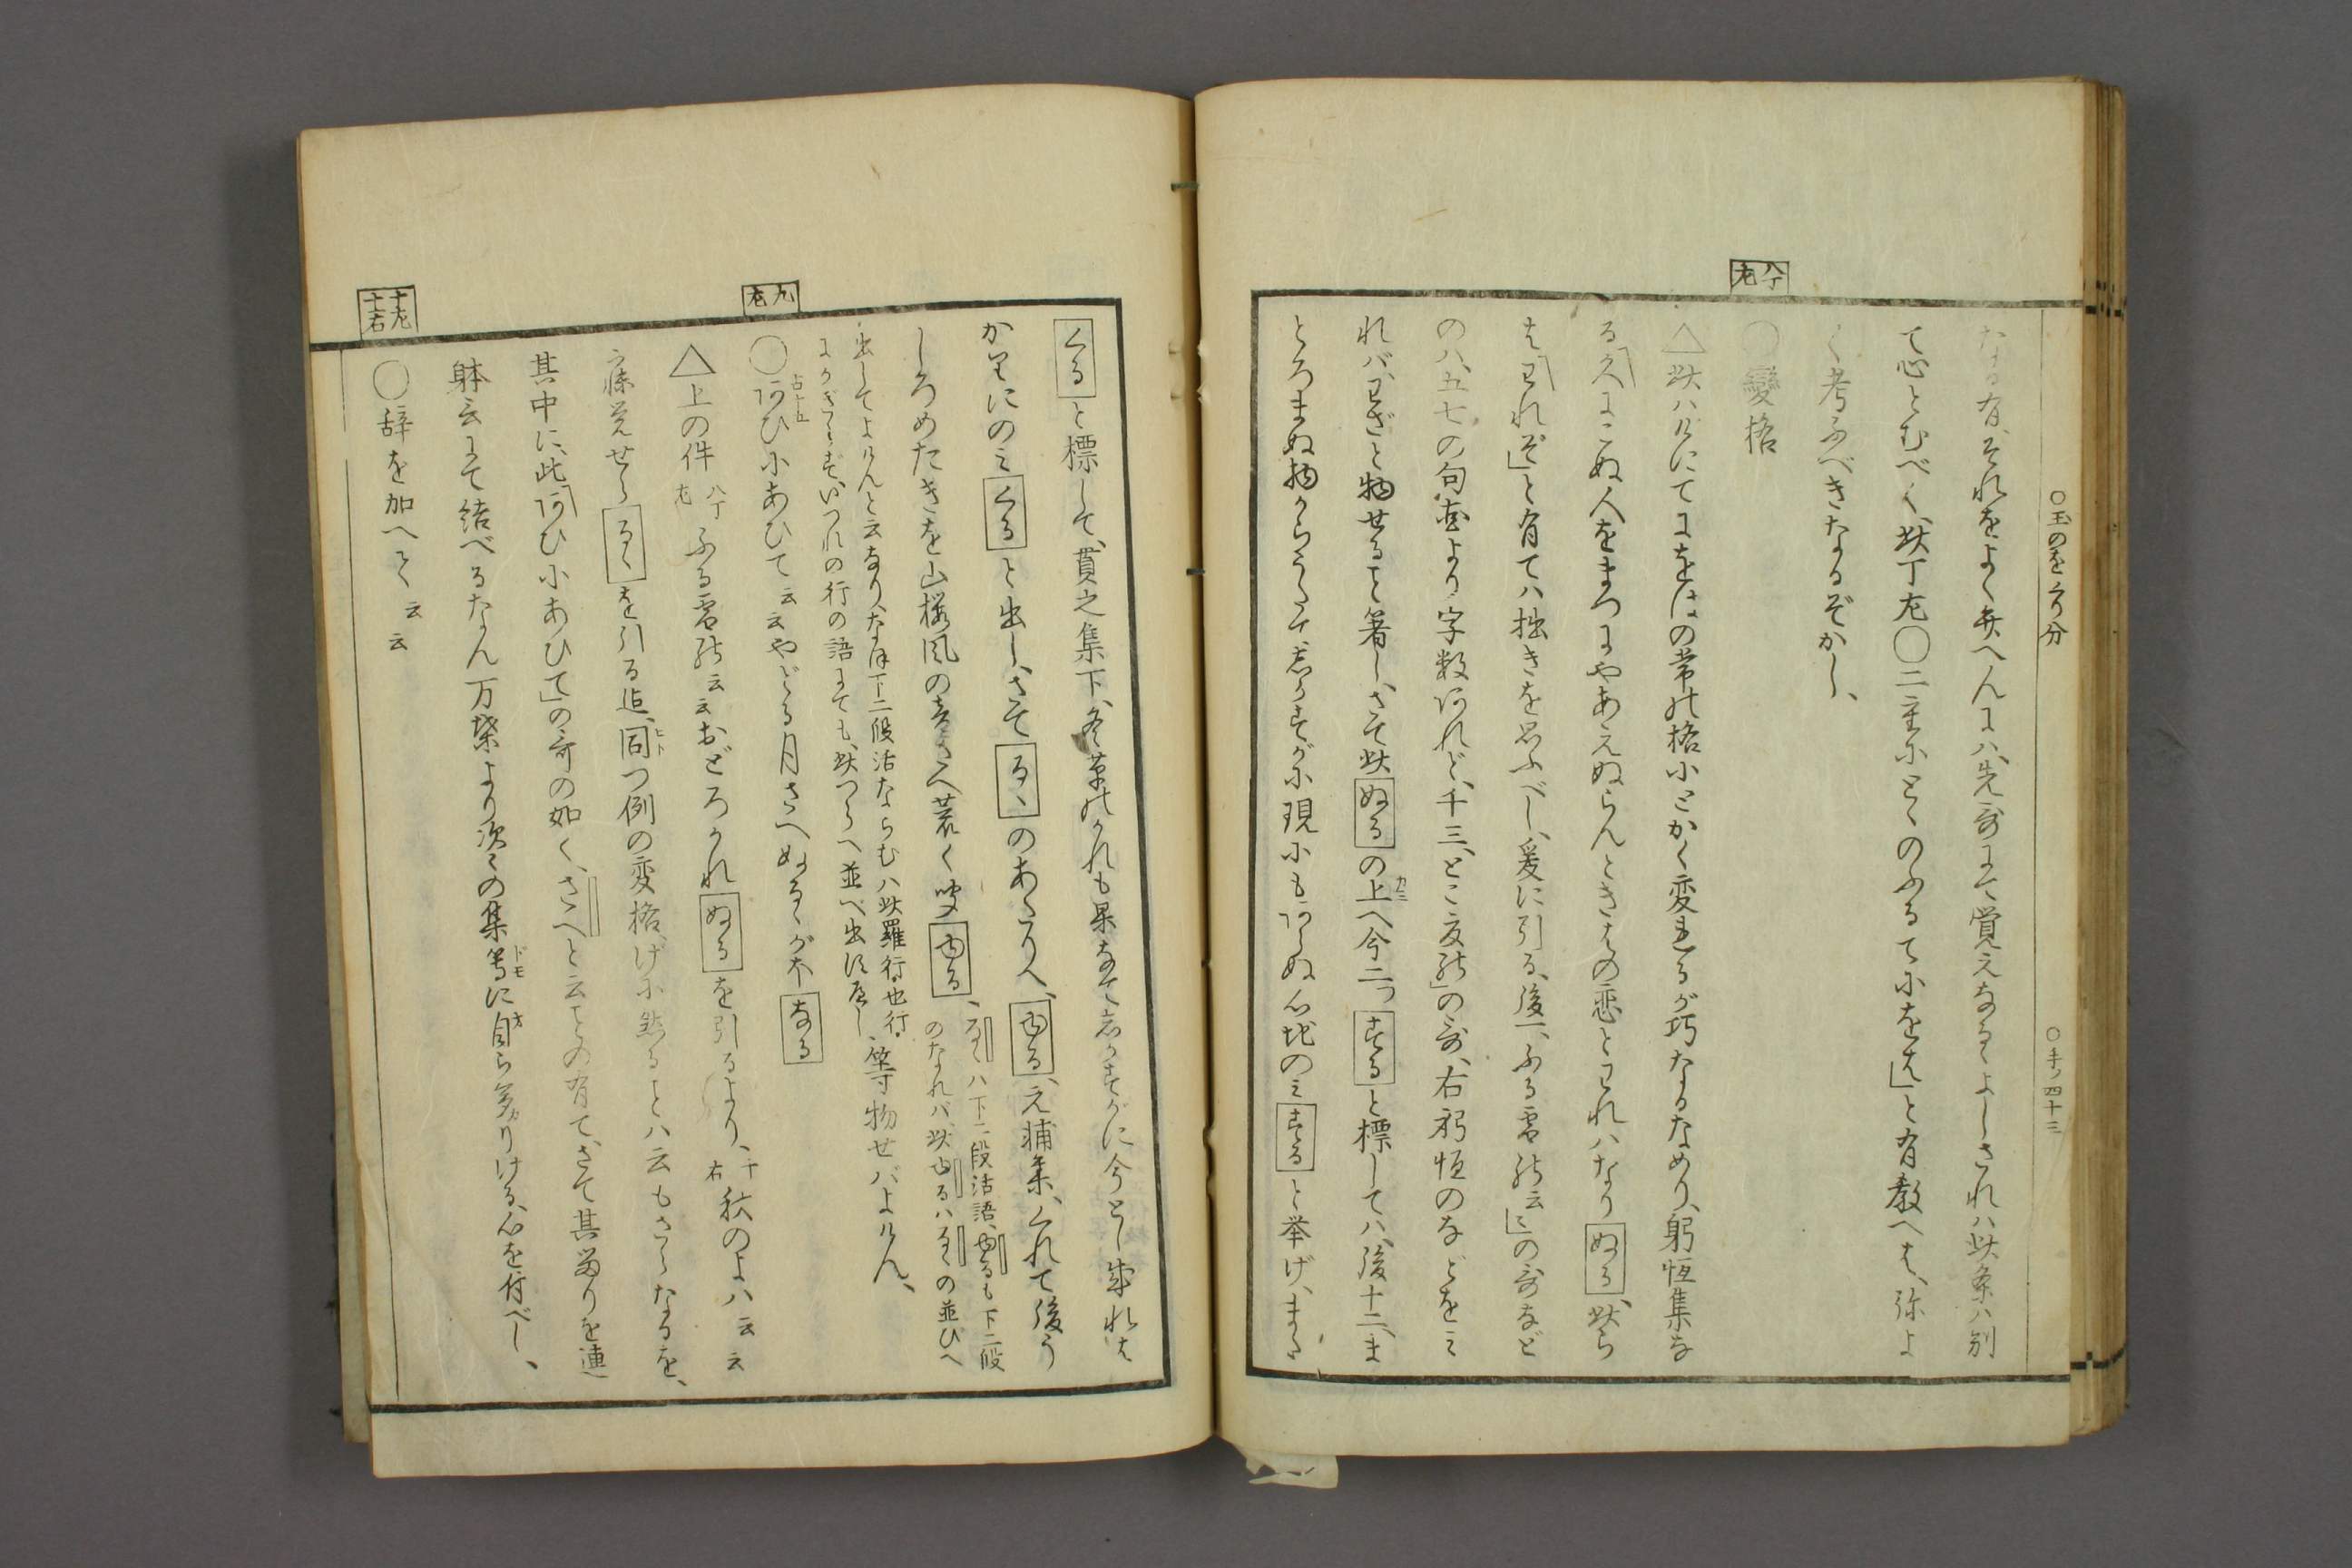 ○玉のをくり分
○手ノ四十三
なる有、それをよく弁へんには、先哥にて覚えなるよしされハ此条ハ別
て心とむべく、此丁尢○二重にとゝのふるてにをは」と有教へも、弥よ
く考ふべきなるぞかし、
八丁尢
○變格
△此ハルにてにをはの常の格にとかく変れるが巧なるなめり、躬恒集な
る人にこぬ人をまつにやあえぬらんときもの恋とこれハなり ぬる 此ら
もこれぞ」と有てハ拙きを思ふべし、爰に引る、後一、ふる雪の云〻」の哥など
のハ、五七の句書より字数あれど、千三、とこ夏の」の哥、右躬恒のなどをミ
れバ、わざと物せること著し、さて此 ぬる の上へ今二つ する と標してハ、後十二、ま
とろまぬ物からうたて、しかすがに現にもあらぬ心地のミ する と挙げ、また
くる と標して、貫之集下、冬草のかれも果なてしかすがに今とし来れは
かりにのミ くる と出し、さて るゝ のあたりへ、 ゆる 、元輔集、くれて後う
しろめたきを山桜風の音さへ荒く聞 ゆる 、
るゝハ下二段活語、ゆるも下二段
のなれバ、此ゆるハるゝの並びへ
出してよけんと云なり、なほ下二段活ならむハ此羅行也行
にかぎらず、いづれの行の語にても、此つらへ並べ出すべし、
等物せバよけん、
九尢
○古十五あひにあひて云云やどる月さへぬるゝがほ なる
△上の件八丁尢ふる雪の云云おどろかれ ぬる を引るより、十右秋のよハ云云
寐覚せら るゝ を引る迄、同つ例の変格げに然ることハ云もさらなるを、
其中に、此「あひにあひて」の哥の如く、さへと云ことの有て、さて其留りを連
躰言にて結べるなん万葉より次々の集等に自ら多かりける、心を付べし、
十尢
十一右
○辞を加へて云云